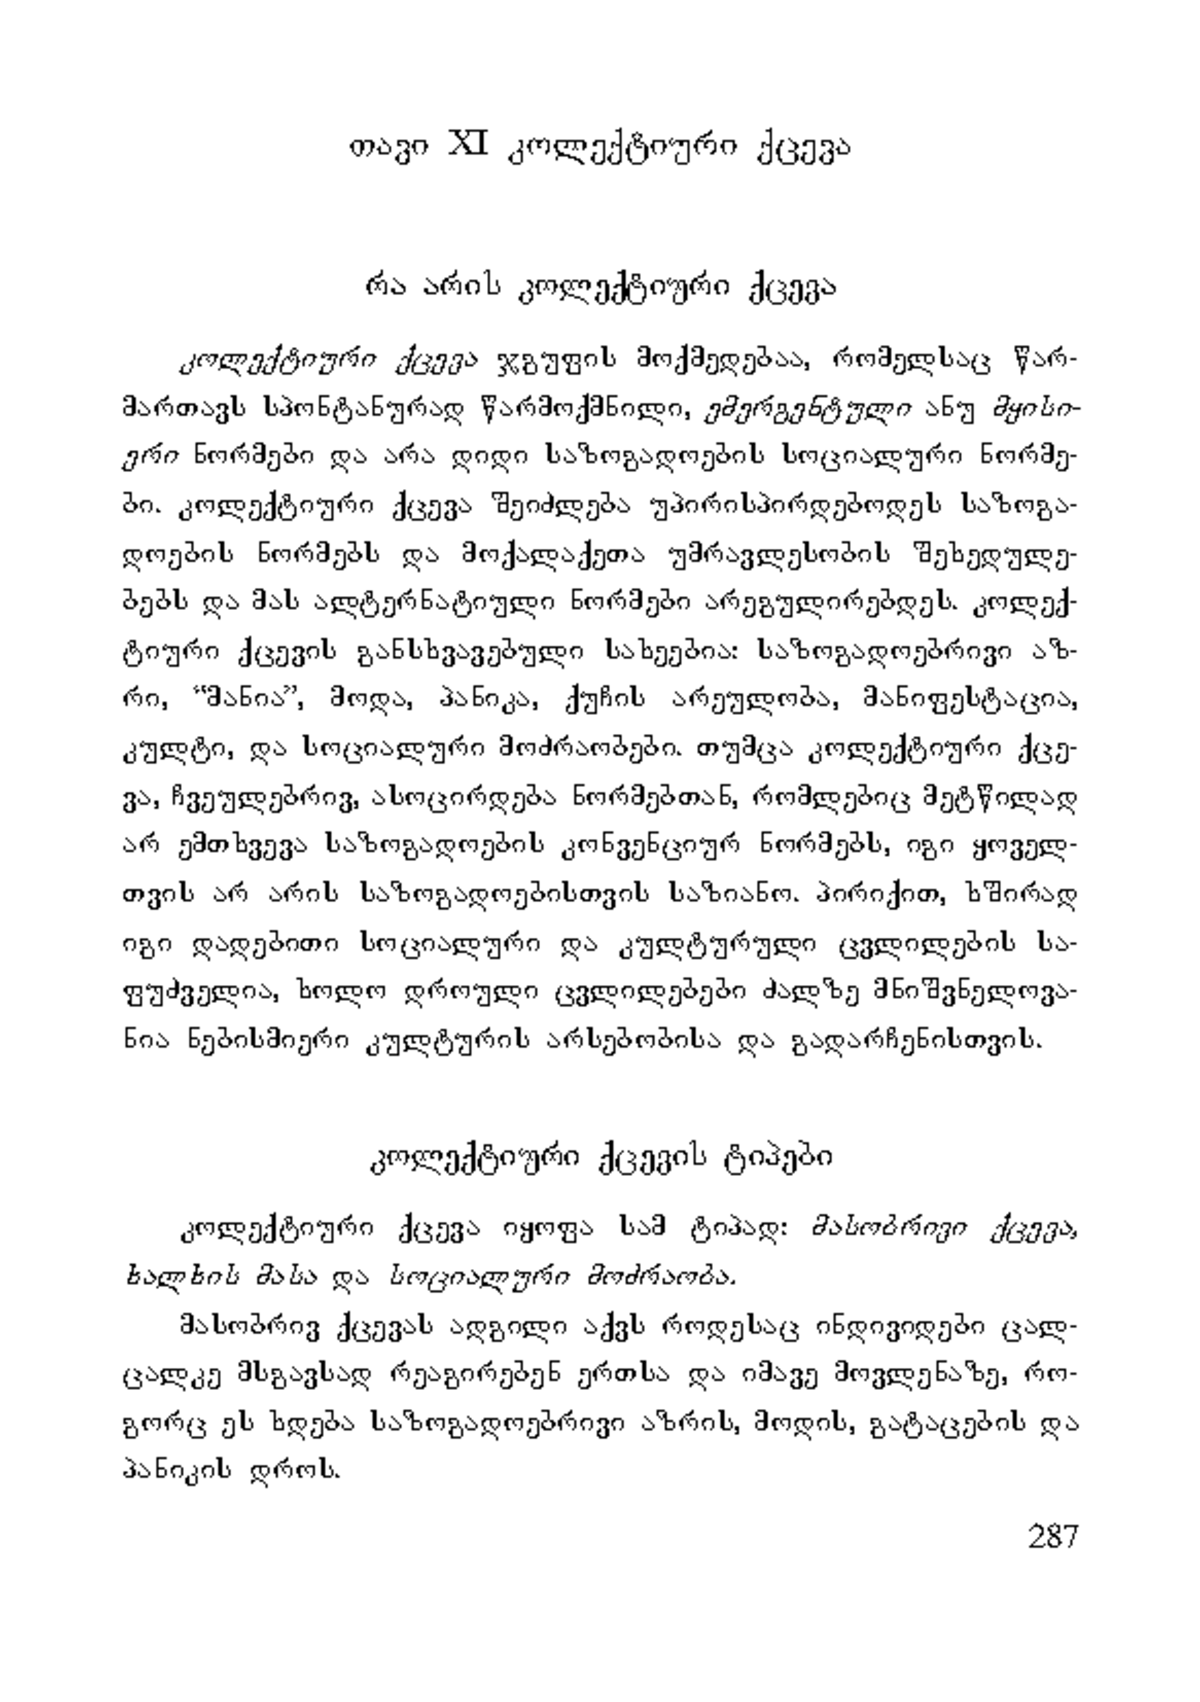 თავი XI კოლექტიური ქცევა
რა არის კოლექტიური ქცევა
კოლექტიური ქცევა ჯგუფის მოქმედებაა, რომელსაც წარ-
მართავს სპონტანურად წარმოქმნილი, ემერგენტული ანუ მყისი-
ერი ნორმები და არა დიდი საზოგადოების სოციალური ნორმე-
ბი. კოლექტიური ქცევა შეიძლება უპირისპირდებოდეს საზოგა-
დოების ნორმებს და მოქალაქეთა უმრავლესობის შეხედულე-
ბებს და მას ალტერნატიული ნორმები არეგულირებდეს. კოლექ-
ტიური ქცევის განსხვავებული სახეებია: საზოგადოებრივი აზ-
რი, “მანია”, მოდა, პანიკა, ქუჩის არეულობა, მანიფესტაცია,
კულტი, და სოციალური მოძრაობები. თუმცა კოლექტიური ქცე-
ვა, ჩვეულებრივ, ასოცირდება ნორმებთან, რომლებიც მეტწილად
არ ემთხვევა საზოგადოების კონვენციურ ნორმებს, იგი ყოველ-
თვის არ არის საზოგადოებისთვის საზიანო. პირიქით, ხშირად
იგი დადებითი სოციალური და კულტურული ცვლილების სა-
ფუძველია, ხოლო დროული ცვლილებები ძალზე მნიშვნელოვა-
ნია ნებისმიერი კულტურის არსებობისა და გადარჩენისთვის.
კოლექტიური ქცევის ტიპები
კოლექტიური ქცევა იყოფა სამ ტიპად: მასობრივი ქცევა,
ხალხის მასა და სოციალური მოძრაობა.
მასობრივ ქცევას ადგილი აქვს როდესაც ინდივიდები ცალ-
ცალკე მსგავსად რეაგირებენ ერთსა და იმავე მოვლენაზე, რო-
გორც ეს ხდება საზოგადოებრივი აზრის, მოდის, გატაცების და
პანიკის დროს.
287